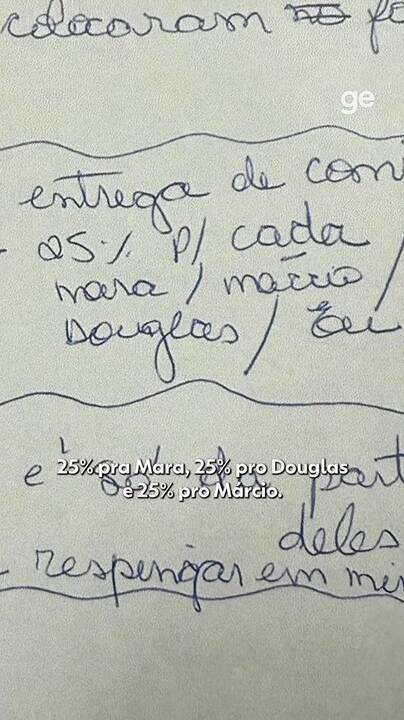 colocaram no
ge
entrega de com
- 25% p/ cada
mara / márcio /
Douglas / Eu
25% pra Mara, 25% pro Douglas
e 25% pro Márcio.
é só da part
deles
- respingar em mi